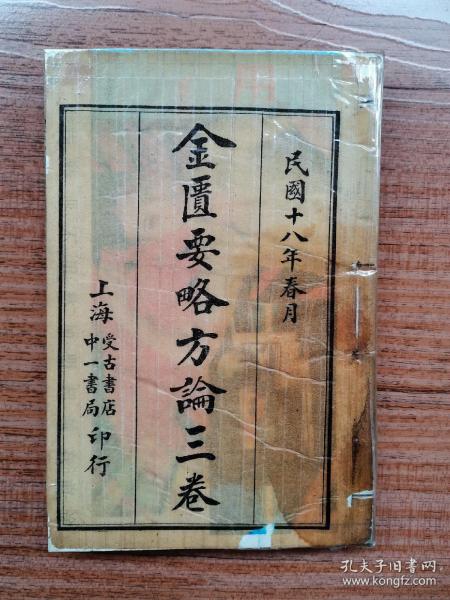 民國十八年春月
金匱要略方論三卷
上海受古書店中一書局印行
孔夫子旧书网
www.kongfz.com